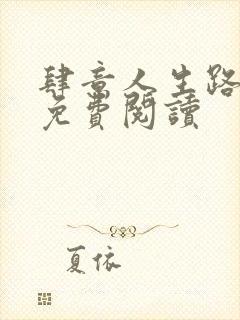 肆意人生路
免費閱讀
夏依